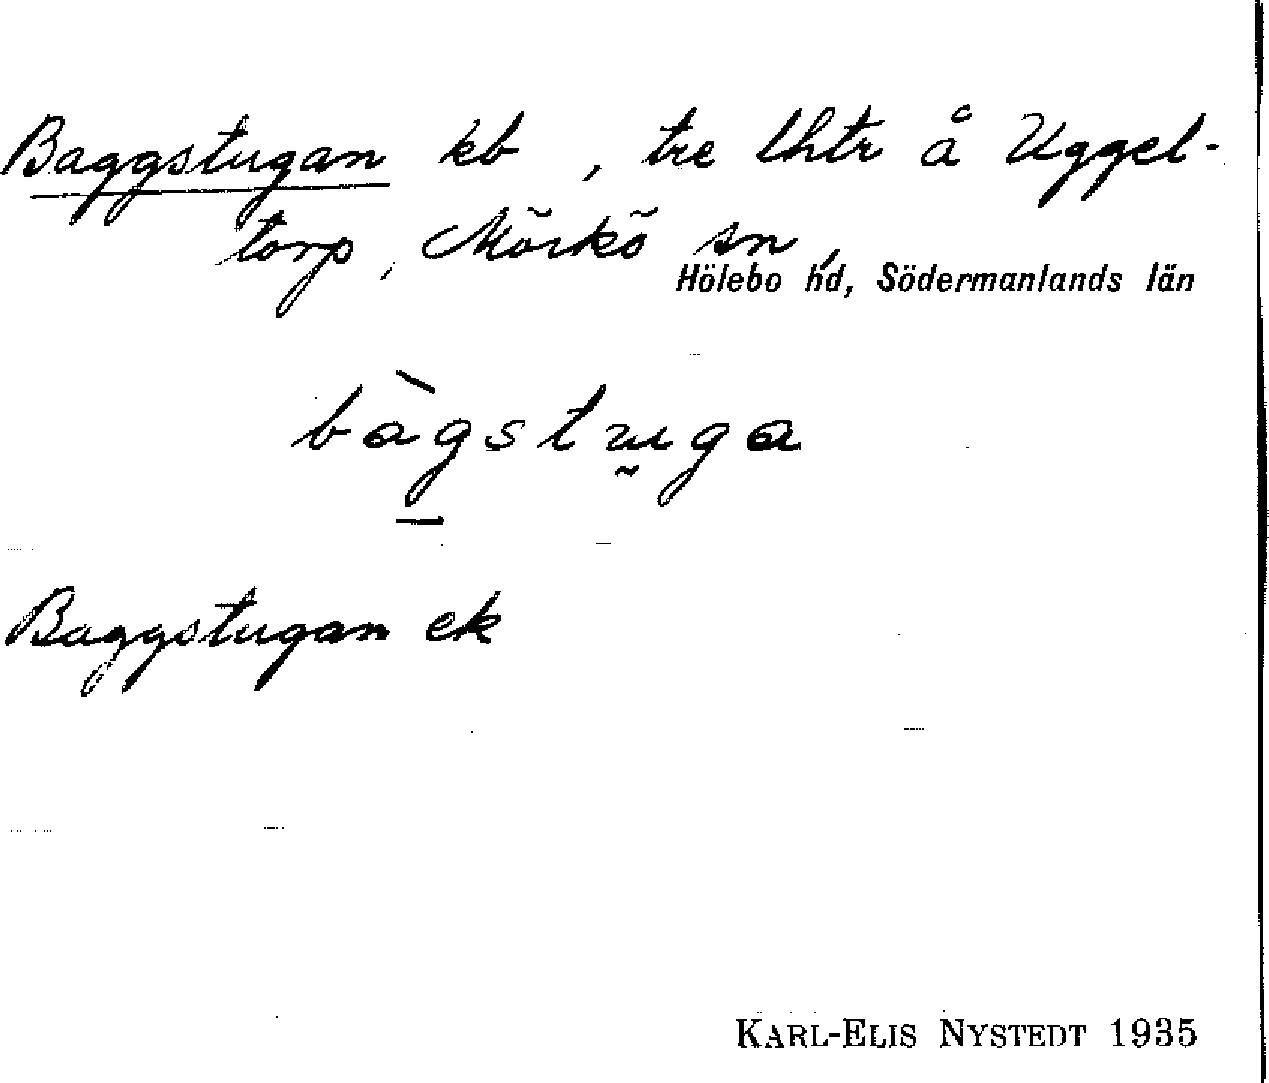 Baggstugan kb, tre lhtr å Uggel-
torp, Mörkö sn,
Hölebo hd, Södermanlands län
bàgstuga
Baggstugan ek
KARL-ELIS NYSTEDT 1935